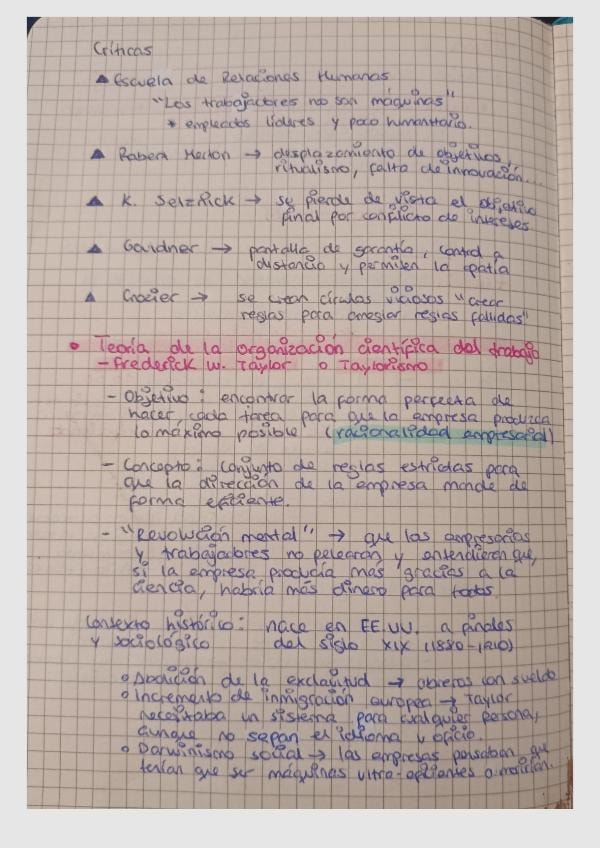 Críticas
▲ Escuela de Relaciones Humanas
"Los trabajadores no son máquinas"
* empleados líderes y poco humanitario.
▲ Robert Merton → desplazamiento de objetivos,
ritualismo, falta de innovación...
▲ K. Selzrick → se pierde de vista el objetivo
final por conflicto de intereses
▲ Gouldner → pantalla de garantía, control a
distancia y permiten la apatía
▲ Crozier → se crean círculos viciosos "crear
reglas para arreglar reglas fallidas"
• Teoría de la organización científica del trabajo
– Frederick W. Taylor o Taylorismo
– Objetivo: encontrar la forma perfecta de
hacer cada tarea para que la empresa produzca
lo máximo posible (racionalidad empresarial)
– Concepto: conjunto de reglas estrictas para
que la dirección de la empresa mande de
forma eficiente.
– "Revolución mental" → que los empresarios
y trabajadores no pelearan y entendieran que,
si la empresa producía más gracias a la
ciencia, habría más dinero para todos.
Contexto histórico: nace en EE.UU. a finales
y sociológico del siglo XIX (1880-1910)
o Abolición de la esclavitud → obreros con sueldo
o Incremento de inmigración europea → Taylor
necesitaba un sistema para cualquier persona,
aunque no sepan el idioma u oficio.
o Darwinismo social → las empresas pensaban que
tenían que ser máquinas ultra-eficientes o morirían.